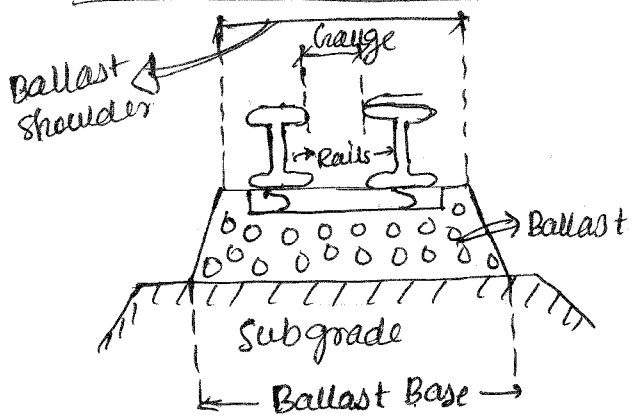 Gauge
Ballast
Shoulder
Rails
Ballast
Subgrade
Ballast Base